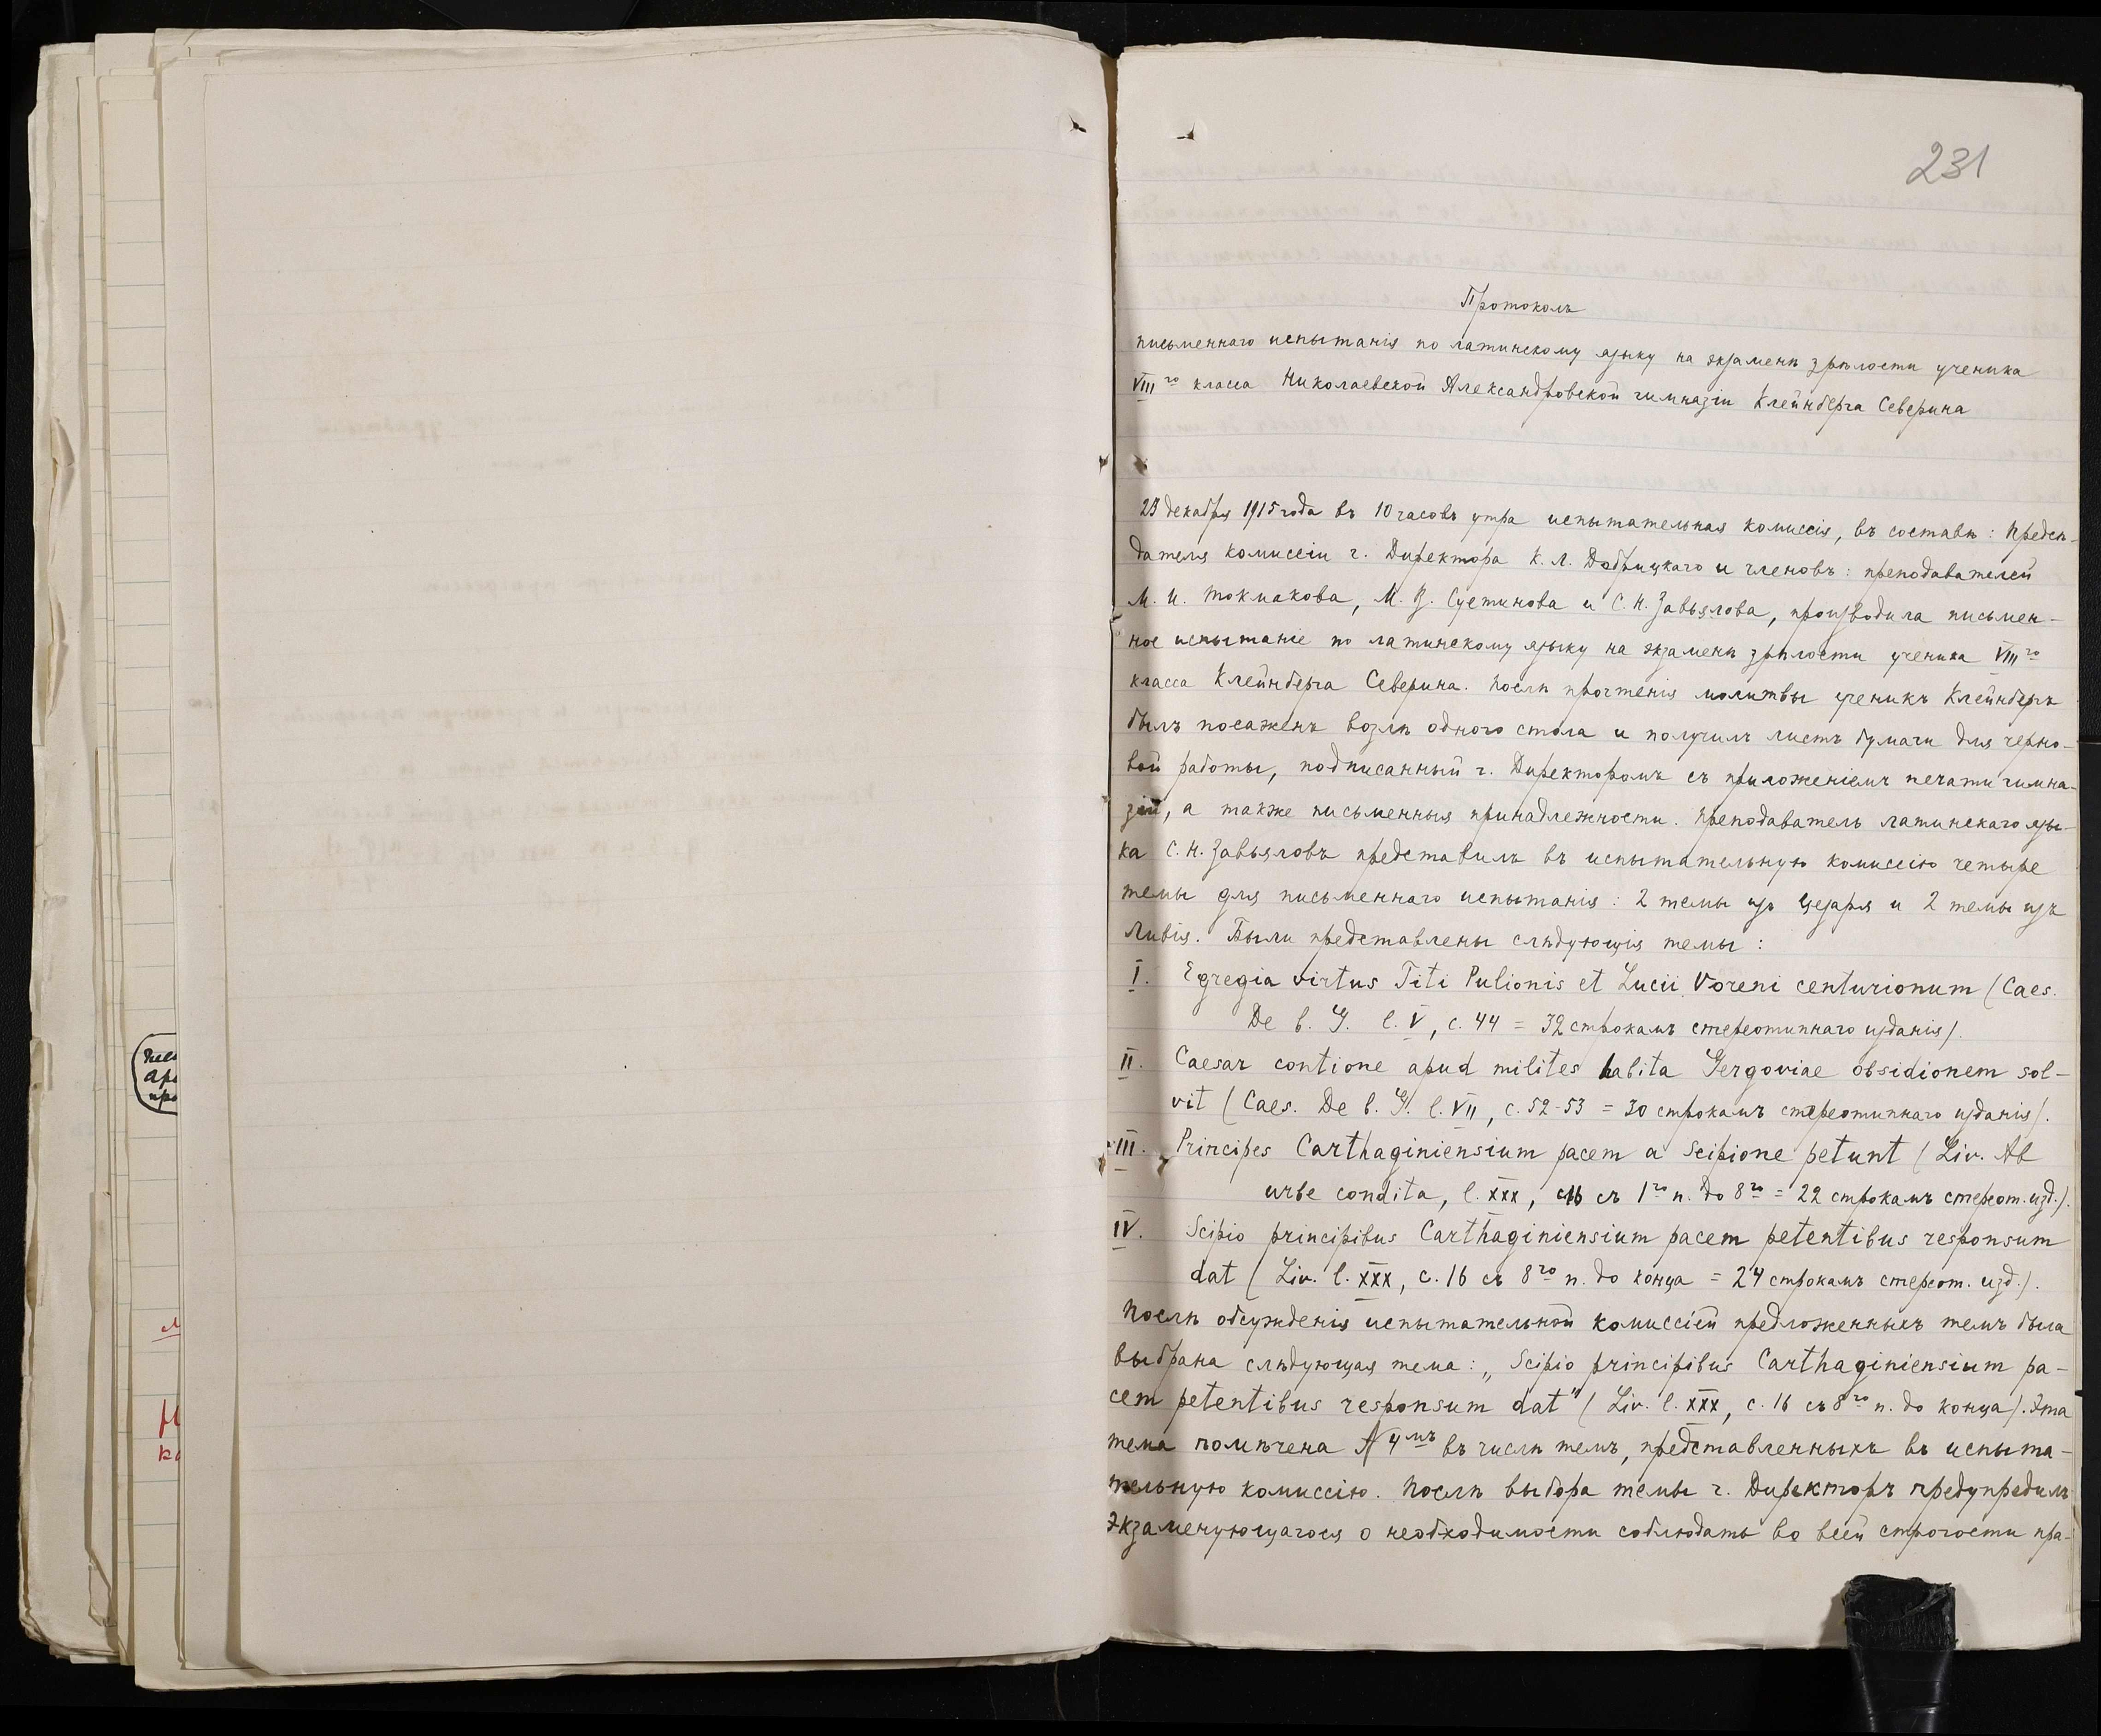 231
Протоколъ
письменнаго испытанія по латинскому языку на экзаменѣ зрѣлости ученика
VIII го класса Николаевской Александровской гимназіи Клейнберга Северина
23 декабря 1915 года въ 10 часовъ утра испытательная комиссія, въ составѣ: предсѣ-
дателя комиссіи г. Директора К. Л. Добрицкаго и членовъ: преподавателей
М. И. Токмакова, М. В. Суетинова и С. Н. Завьялова, производила письмен-
ное испытаніе по латинскому языку на экзаменѣ зрѣлости ученика VIII го
класса Клейнберга Северина. Послѣ прочтенія молитвы ученикъ Клейнбергъ
былъ посаженъ возлѣ одного стола и получилъ листъ бумаги для черно-
вой работы, подписанный г. Директоромъ съ приложеніемъ печати гимна-
зіи, а также письменныя принадлежности. Преподаватель латинскаго язы-
ка С. Н. Завьяловъ представилъ въ испытательную комиссію четыре
темы для письменнаго испытанія: 2 темы изъ Цезаря и 2 темы изъ
Ливія. Были представлены слѣдующія темы:
I. Egregia virtus Titi Pulionis et Lucii Voreni centurionum (Caes.
De b. G. l. V, c. 44 = 32 строкамъ стереотипнаго изданія).
II. Caesar contione apud milites habita Gergoviae obsidionem sol-
vit (Caes. De b. G. l. VII, c. 52-53 = 30 строкамъ стереотипнаго изданія).
III. Principes Carthaginiensium pacem a Scipione petunt (Liv. Ab
urbe condita, l. XXX, c. 16 съ 1 го п. до 8 го = 22 строкамъ стереот. изд.).
IV. Scipio principibus Carthaginiensium pacem petentibus responsum
dat (Liv. l. XXX, c. 16 съ 8 го п. до конца = 24 строкамъ стереот. изд.).
Послѣ обсужденія испытательной комиссіей предложенныхъ темъ была
выбрана слѣдующая тема: „Scipio principibus Carthaginiensium pa-
cem petentibus responsum dat" (Liv. l. XXX, c. 16 съ 8 го п. до конца). Эта
тема помѣчена № 4 мъ въ числѣ темъ, представленныхъ въ испыта-
тельную комиссію. Послѣ выбора темы г. Директоръ предупредилъ
экзаменующагося о необходимости соблюдать во всей строгости пра-